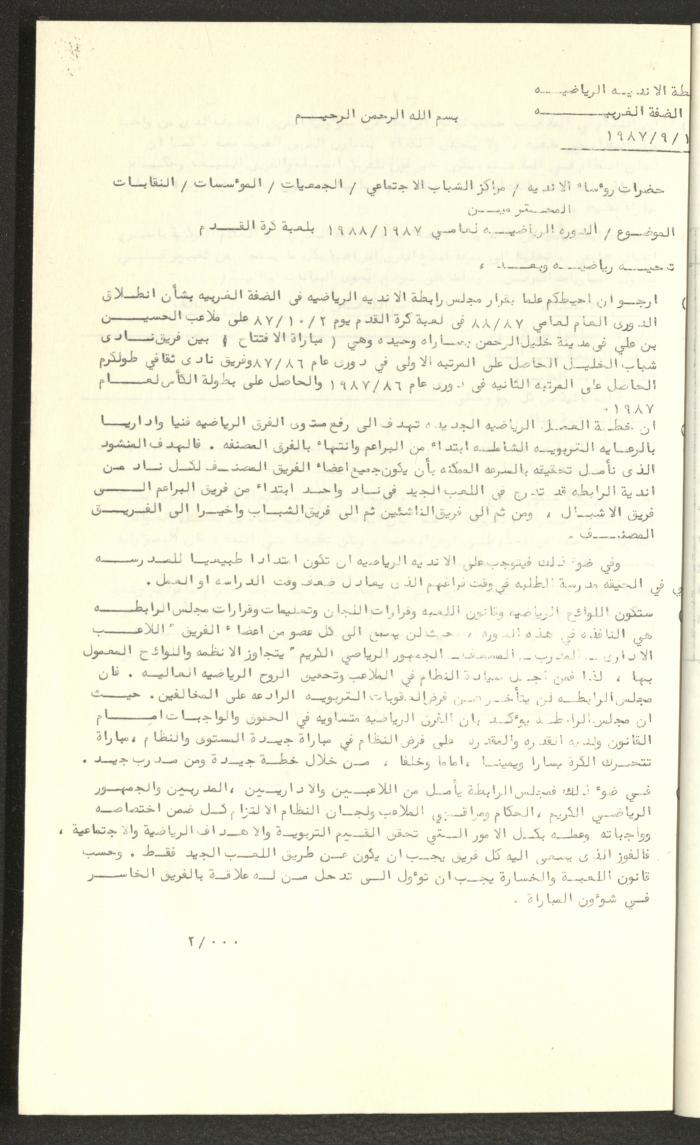 بطة الانديه الرياضيه
الضفة الغربيه
١٩٨٧/٩/١
بسم الله الرحمن الرحيم
حضرات روٴساء الانديه / مراكز الشباب الاجتماعي / الجمعيات / الموٴسسات / النقابات
المحترمين
الموضوع / الدوره الرياضيه لعامي ١٩٨٨/١٩٨٧ بلعبة كرة القدم
تحيه رياضيه وبعد ،
ارجو ان احيطكم علما بقرار مجلس رابطة الانديه الرياضيه فى الضفة الغربيه بشأن انطلاق
الدورى العام لعامي ٨٨/٨٧ فى لعبة كرة القدم يوم ٨٧/١٠/٢ على ملاعب الحسين
بن علي فى مدينة خليل الرحمن بمباراه وحيده وهي ( مباراة الافتتاح ) بين فريق نادى
شباب الخليل الحاصل على المرتبه الاولى في دورى عام ٨٧/٨٦ وفريق نادى ثقافي طولكرم
الحاصل على المرتبه الثانيه فى دورى عام ١٩٨٧/٨٦ والحاصل على بطولة الكأس لعام
١٩٨٧ .
ان خطة العمل الرياضيه الجديده تهدف الى رفع مستوى الفرق الرياضيه فنيا واداريا
بالرعايه التربويه الشامله ابتداء من البراعم وانتهاء بالفرق المصنفه . فالهدف المنشود
الذى نأمل تحقيقه بالسرعه الممكنه بأن يكون جميع اعضاء الفريق المصنف لكل ناد من
اندية الرابطه قد تدرج في اللعب الجيد فى ناد واحد ابتداء من فريق البراعم الى
فريق الاشبال ، ومن ثم الى فريق الناشئين ثم الى فريق الشباب واخيرا الى الفريق
المصنف .
وفي ضوء ذلك فيتوجب على الانديه الرياضيه ان تكون امتدادا طبيعيا للمدرسه
في الحقيقه مدرسة الطلبه في وقت فراغهم الذى يعادل ضعف وقت الدراسه او العمل .
ستكون اللوائح الرياضيه وقانون اللعبه وقرارات اللجان وتعليمات وقرارات مجلس الرابطه
هي النافذه في هذه الدوره ، بحيث لن يسمح الى كل عضو من اعضاء الفريق " اللاعب
الادارى - المدرب - المسعف - الجمهور الرياضي الكريم " يتجاوز الانظمه واللوائح المعمول
بها ، لذا فمن اجل سيادة النظام في الملاعب وتحقيق الروح الرياضيه العاليه . فان
مجلس الرابطه لن يتأخر عن فرض العقوبات التربويه الرادعه على المخالفين . حيث
ان مجلس الرابطه يوٴكد بان الفرق الرياضيه متساويه في الحقوق والواجبات امام
القانون ولديه القدره والمقدره على فرض النظام في مباراة جيدة المستوى والنظام ، مباراة
تتحرك الكرة يسارا ويمينا ، اماما وخلفا ، من خلال خطة جيدة ومن مدرب جيد .
في ضوء ذلك فمجلس الرابطة يأمل من اللاعبين والاداريين ، المدربين والجمهور
الرياضي الكريم ، الحكام ومراقبي الملاعب ولجان النظام الالتزام كل ضمن اختصاصه
وواجباته وعمله بكل الامور التي تحقق القيم التربوية والاهداف الرياضية والاجتماعية ،
فالفوز الذى يسعى اليه كل فريق يجب ان يكون عن طريق اللعب الجيد فقط . وحسب
قانون اللعبة والخسارة يجب ان توٴول الى تدخل من له علاقة بالفريق الخاسر
في شوٴون المباراة .
٢/٠٠٠